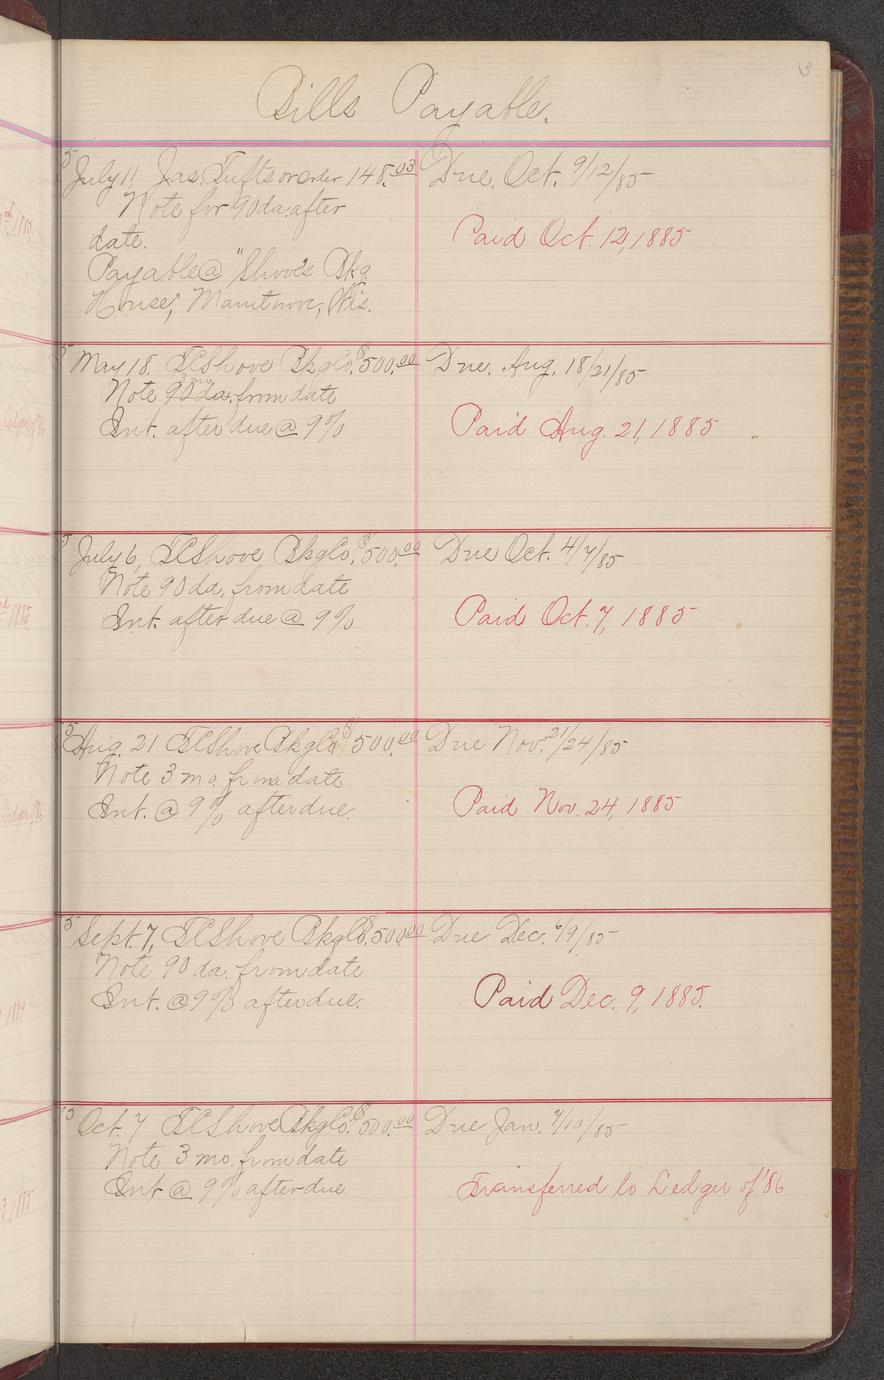 3
Bills Payable.
5 July 11, Jas. Tufts or order 148.03 Due. Oct. 9/12/85
Note for 90 da. after
date.
Paid Oct. 12, 1885
Payable @ "Shove's Bkg.
House", Manitowoc, Wis.
5 May 18. TCShove BkgCo. $500.00 Due. Aug. 18/21/85
3 mo
Note 90 da. from date
Int. after due @ 9%
Paid Aug. 21, 1885
5 July 6, TCShove BkgCo. $500.00 Due Oct. 4/7/85
Note 90 da. from date
Int. after due @ 9%
Paid Oct. 7, 1885
5 Aug. 21 TCShove BkgCo $500.00 Due Nov. 21/24/85
Note 3 mo. from date
Int. @ 9% after due.
Paid Nov. 24, 1885
5 Sept. 7, TCShove BkgCo. $500.00 Due Dec. 6/9/85
Note 90 da. from date
Int. @ 9% after due.
Paid Dec. 9, 1885.
5 Oct. 7 TCShove BkgCo. $500.00 Due Jan. 7/10/85
Note 3 mo. from date
Int @ 9% after due
Transferred to Ledger of '86